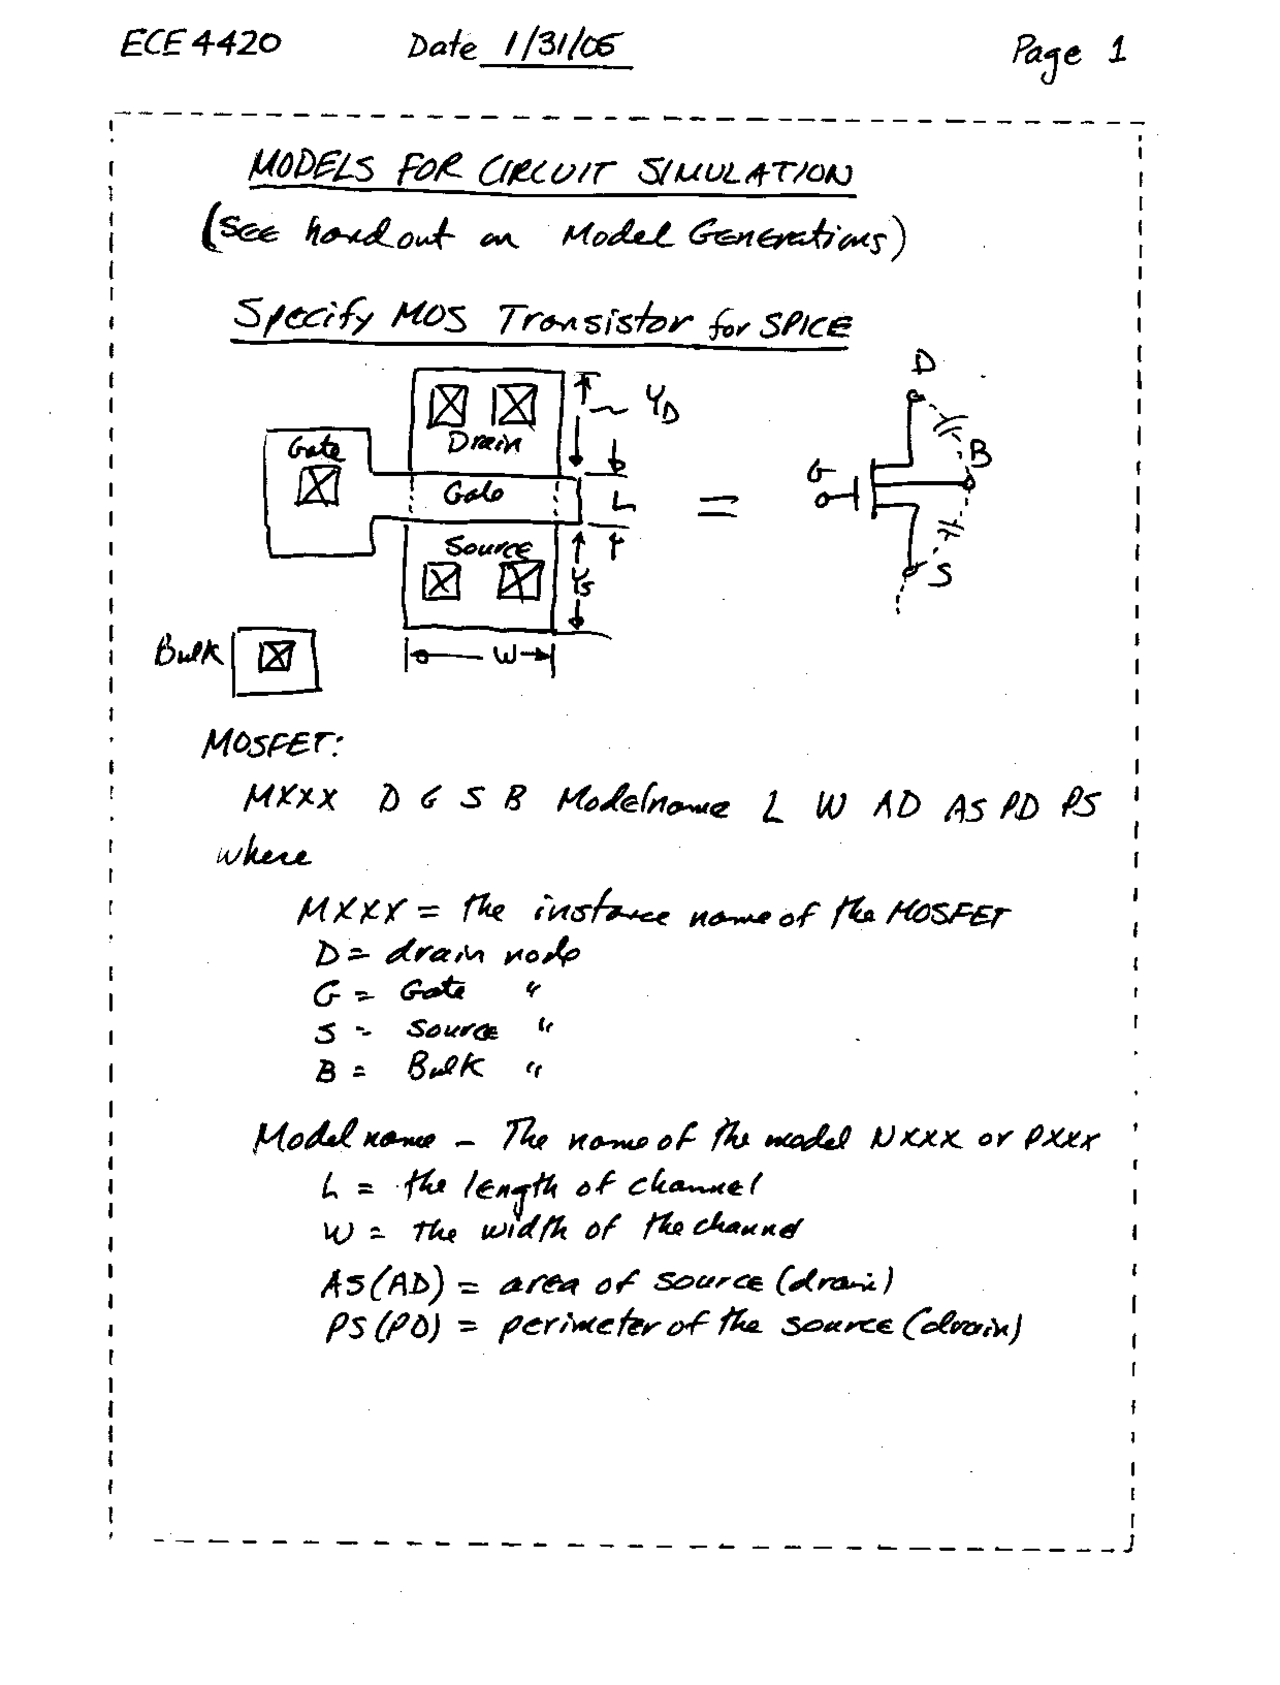 ECE 4420 Date 1/31/05 Page 1
MODELS FOR CIRCUIT SIMULATION
(See handout on Model Generations)
Specify MOS Transistor for SPICE
D
Y_D
Gate
Drain
B
G
Gate
L
=
Source
Y_S
S
Bulk
W
MOSFET:
MXXX D G S B Modelname L W AD AS PD PS
where
MXXX = the instance name of the MOSFET
D = drain node
G = Gate "
S = Source "
B = Bulk "
Model name - The name of the model NXXX or PXXX
L = the length of channel
W = the width of the channel
AS(AD) = area of source (drain)
PS(PD) = perimeter of the source (drain)